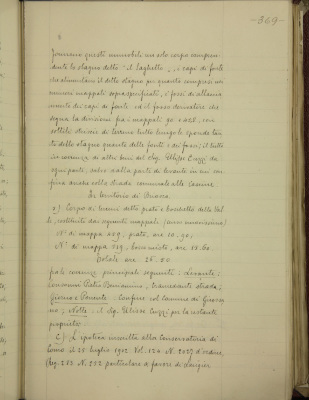 -369-
formano questi immobili un solo corpo compren-
dente lo stagno detto "il Laghetto", i capi di fonte
che alimentano il detto stagno per quanto compresi nei
numeri mappali sopraspecificati, i fossi di allacia-
mento dei capi di fonte ed il fosso derivatore che
segna la divisione fra i mappali 90 e 228, con
sottili striscie di terreno lungo le sponde tan-
to dello stagno quanto delle fonti e dei fossi; il tutto
in coerenza di altri beni del Sig. Ulisse Cuzzi da
ogni parte, salvo dalla parte di levante in cui con-
fina anche colla strada comunale alle Cascine.
In territorio di
2) Corpo di terreni detto prato e boschetto della Val-
le, costituito dai seguenti mappali
N° di mappa 429, prato, are 10.90,
N° di mappa 929, are 15.60
Totale are 26.50
poste coerenze principali seguenti: Levante:
strada;
Ponente: Confine col Comune di
; Notte: il Sig. Ulisse Cuzzi per la restante
proprietà.
C) L'ipoteca inscritta alla Conservatoria di
Como il 25 luglio 1902 Vol. 124 N. 2027 d'ordine,
(Reg. 283 N. 252 particolare a favore di Luvigia